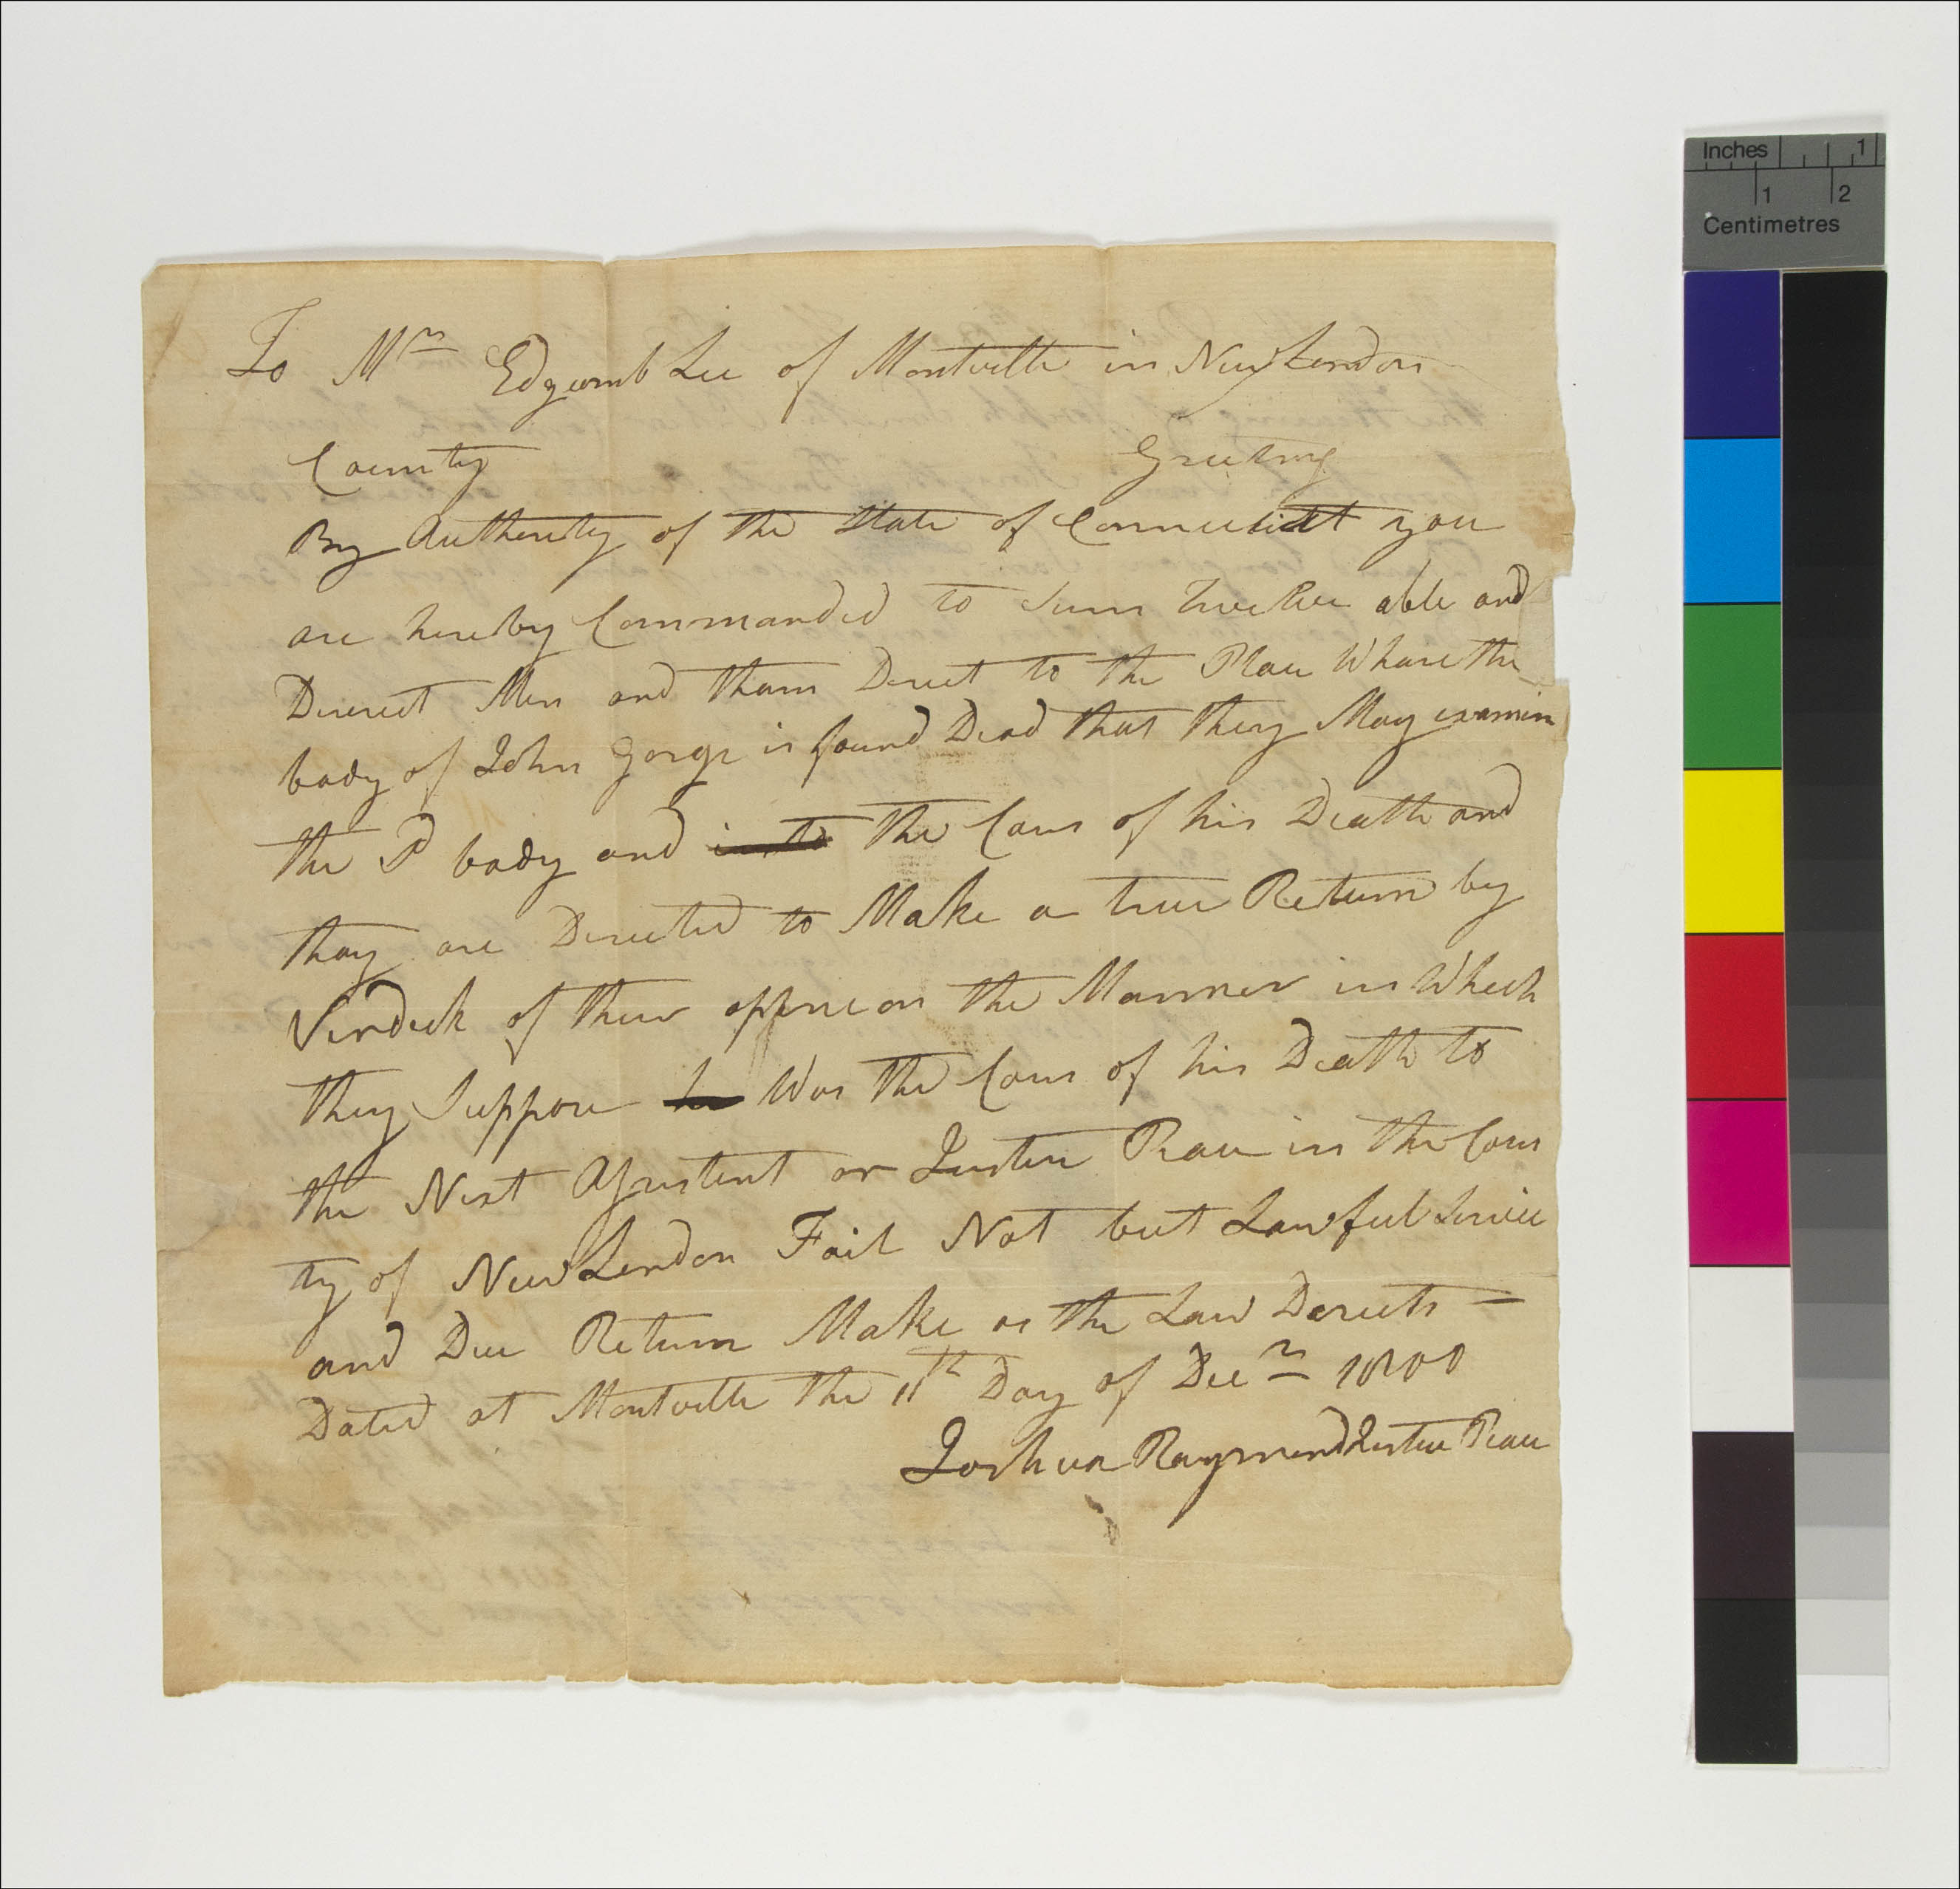 To Mr Edgcomb Lee of Montville in New London
County Greeting
By Authority of the State of Connecticut you
are hereby Commanded to Sum Twelve able and
Discreet Men and tham Derect to the Place Whare the
body of John Gorge is found Dead that they May examin
the Sd body and into the Caus of his Death and
thay are Derected to Make a true Return by
Verdick of their oppineon the Manner in Which
they Suppose he Was the Caus of his Death to
the Next Assistent or Justice Peace in the Coun
ty of New London Fail Not but Lawful Service
and Due Return Make as the Law Derects —
Dated at Montville the 11th Day of Decr 1800
Joshua Raymond Justice Peace
Inches 1
1 2
Centimetres